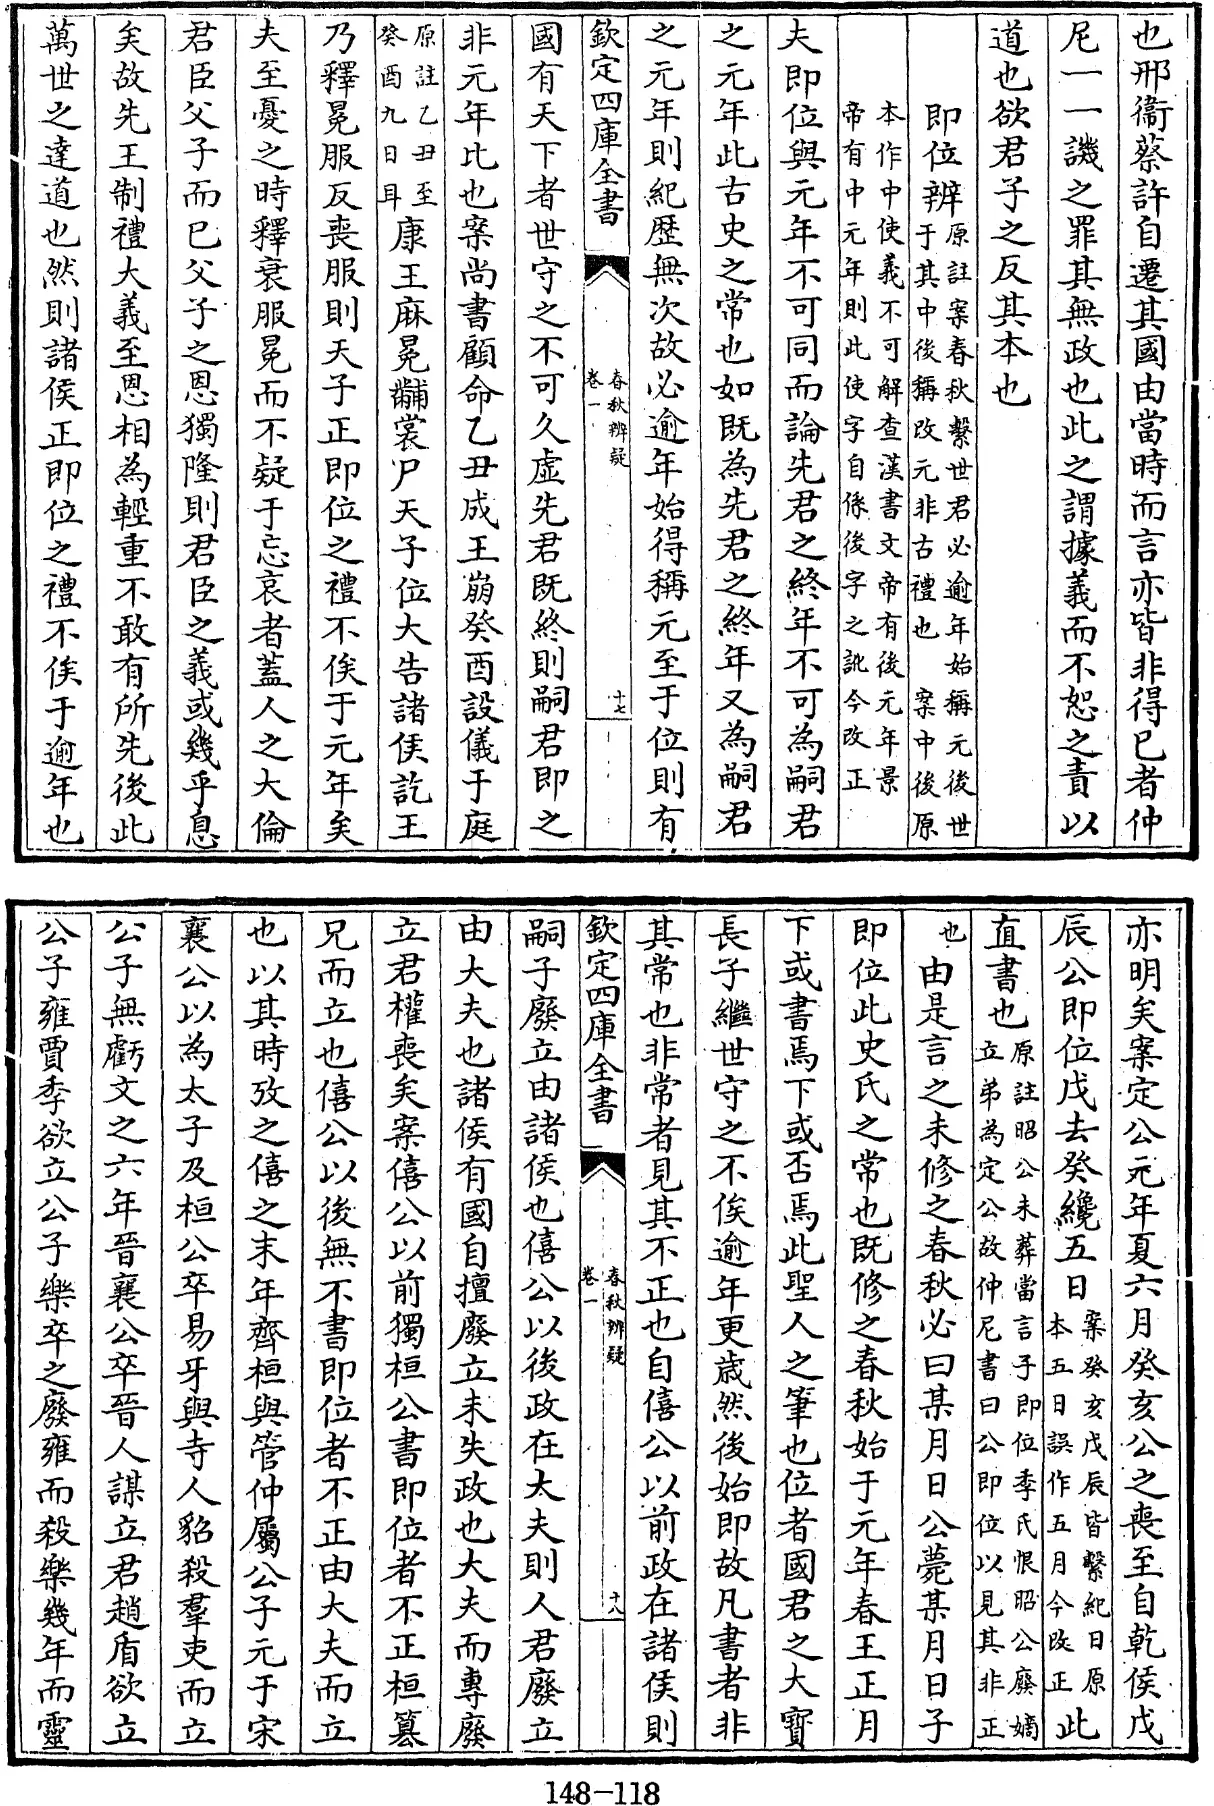 也邢衞蔡許自遷其國由當時而言亦皆非得已者仲
尼一一譏之罪其無政也此之謂據義而不恕之責以
道也欲君子之反其本也
即位辨原註案春秋繫世君必逾年始稱元後世
于其中後稱改元非古禮也　案中後原
本作中使義不可解查漢書文帝有後元年景
帝有中元年則此使字自係後字之訛今改正
夫即位與元年不可同而論先君之終年不可為嗣君
之元年此古史之常也如既為先君之終年又為嗣君
之元年則紀歷無次故必逾年始得稱元至于位則有
欽定四庫全書
春秋辨疑
卷一
十七
國有天下者世守之不可久虛先君既終則嗣君即之
非元年比也案尚書顧命乙丑成王崩癸酉設儀于庭
原註乙丑至
癸酉九日耳
康王麻冕黼裳尸天子位大告諸侯訖王
乃釋冕服反喪服則天子正即位之禮不俟于元年矣
夫至憂之時釋衰服冕而不疑于忘哀者蓋人之大倫
君臣父子而已父子之恩獨隆則君臣之義或幾乎息
矣故先王制禮大義至恩相為輕重不敢有所先後此
萬世之達道也然則諸侯正即位之禮不俟于逾年也
亦明矣案定公元年夏六月癸亥公之喪至自乾侯戊
辰公即位戊去癸纔五日案癸亥戊辰皆繫紀日原
本五日誤作五月今改正此
直書也原註昭公未葬當言子即位季氏恨昭公廢嫡
立弟為定公故仲尼書曰公即位以見其非正
也由是言之未修之春秋必曰某月日公薨某月日子
即位此史氏之常也既修之春秋始于元年春王正月
下或書焉下或否焉此聖人之筆也位者國君之大寶
長子繼世守之不俟逾年更歲然後始即故凡書者非
其常也非常者見其不正也自僖公以前政在諸侯則
欽定四庫全書
春秋辨疑
卷一
十八
嗣子廢立由諸侯也僖公以後政在大夫則人君廢立
由大夫也諸侯有國自擅廢立未失政也大夫而專廢
立君權喪矣案僖公以前獨桓公書即位者不正桓簒
兄而立也僖公以後無不書即位者不正由大夫而立
也以其時攷之僖之末年齊桓與管仲屬公子元于宋
襄公以為太子及桓公卒易牙與寺人貂殺羣吏而立
公子無虧文之六年晉襄公卒晉人謀立君趙盾欲立
公子雍賈季欲立公子樂卒之廢雍而殺樂幾年而靈
148-118